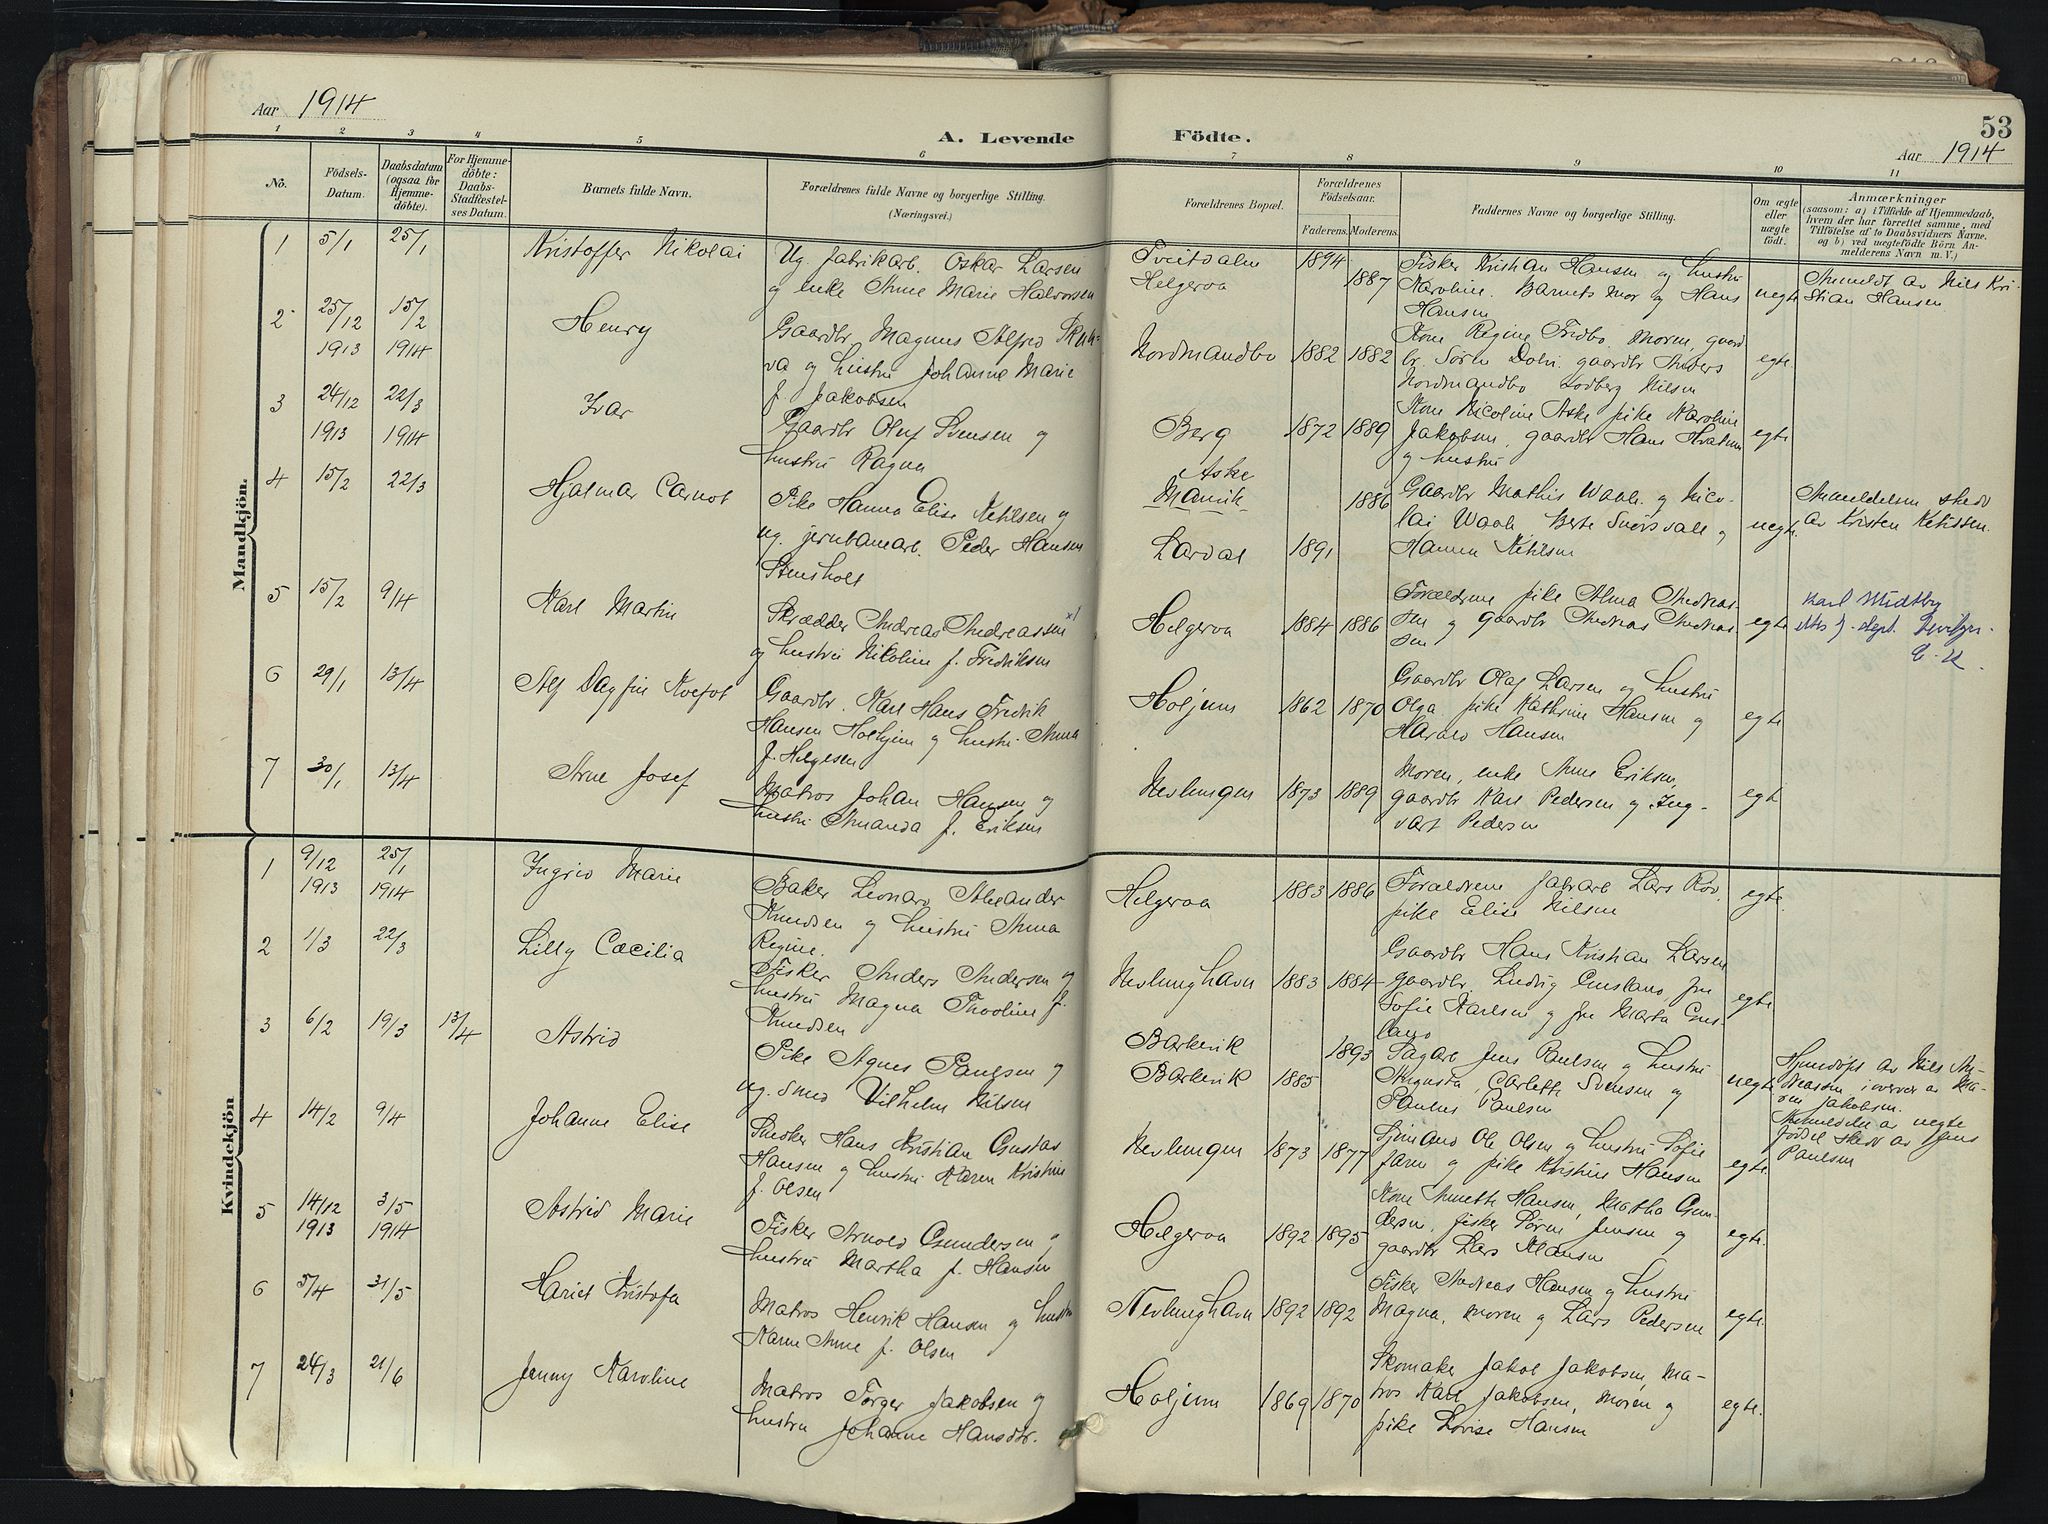 Aar 1914
A. Levende Födte.
53
Aar 1914
1 2 3 4 5 6 7 8 9 10 11
No.
Födsels-Datum.
Daabsdatum (ogsaa for Hjemme-döbte).
For Hjemme-döbte: Daabs-Stadfæstel-ses Datum.
Barnets fulde Navn.
Forældrenes fulde Navne og borgerlige Stilling. (Næringsvei.)
Forældrenes Bopæl.
Forældrenes Födselsaar.
Faderens. Moderens.
Faddernes Navne og borgerlige Stilling.
Om ægte eller uægte födt.
Anmærkninger
(saasom: a) i Tilfælde af Hjemmedaab,
hvem der har forrettet samme, med
Tilföielse af to Daabsvidners Navne.
og b) ved uegtefödte Börn An-
melderens Navn m. V.)
Mandkjön.
1 5/1 25/1 Kristoffer Nikolai
Ug. fabrikarb. Oskar Larsen
og enke Anne Marie Halvorsen
Tveitdalen 1894
Helgeroa 1887
Fisker Kristian Hansen og hustru
Karoline. Barnets mor og Hans
Hansen
uegte
Anmeldt av Nils Kri-
stian Hansen
2 25/12 1913 15/2 1914 Henry
Gaardbr Magnus Alfred
va og hustru Johanne Marie
f. Jakobsen
Nordmandbo 1882 1882
Kone Regine Fridbo, Moren, gaard
br. Sørn gaardbr Anders
Nordmandbo Nilsen
egte
3 24/12 1913 22/3 1914 Ivar
Gaardbr Oluf Svensen og
hustru Ragna
Berg 1872 1889
Kone Nicoline Aske pike Karoline
Jakobsen, gaardbr Hans
og hustru
egte
4 15/2 22/3 Hjalmar Carnot
Pike Hanna Elise Ketilsen og
ug. jernbanearb. Peder Hansen
Stensholt
Aske
Manvik 1886
Lardal 1891
Gaardbr Mathis Waale og Nico-
lai Waale, Berte og
Hanna Ketilsen
uegte
Anmeldelsen skedd
av Kristen Ketilsen.
5 15/2 9/4 Karl Martin
Skrædder Andreas Andreassen x)
og hustru Nikoline f. Fredriksen
Helgeroa 1884 1886
Forældrene pike Alma Andreas-
sen og gaardbr Andreas Andreas
sen
egte
Karl Midtby
6 29/1 13/4 Alf Dagfin
Gaardbr. Karl Hans Fredrik
Hansen Holhjem og hustru Anna
f. Helgesen
Holjem 1862 1870
Gaardbr Olaf Larsen og hustru
Olga, pike Kathrine Hansen og
Harald Hansen
egte
7 30/1 13/4 Arne Josef
Matros Johan Hansen og
hustru Amanda f. Eriksen
Nevlungen 1873 1889
Moren, enke Anne Eriksen,
gaardbr Karl Pedersen og Ing-
vart Pedersen
egt
Kvindekjön
1 9/12 1913 25/1 1914 Ingrid Marie
Baker Leonard Alexander
Knudsen og hustru Anna
Regine.
Helgeroa 1883 1886
Forældrene fabarb Lars
pike Elise Nilsen
egte
2 1/3 22/3 Lilly Cæcilia
Fisker Anders Andersen og
hustru Magna Thooline f.
Knudsen
Nevlunghavn 1883 1884
Gaardbr Hans Kristian Larsen
gaardbr. Ludvig fru
Sofie Karlsen og fru Marta
egte
3 6/2 19/3 13/4 Astrid
Pike Agnes Paulsen og
ug. smed Vilhelm Nilsen
Barkevik 1893
Barkevik 1885
Sagarb Jens Paulsen og hustru
Augusta, Carlette Svensen og
Paulus Paulsen
uegte
Hjemdøpt av Nils An-
dreasen i overvær av Ma-
ren Jakobsen.
Anmeldelse av uegte
fødsel skedd av Jens
Paulsen
4 14/2 9/4 Johanne Elise
Snedker Hans Kristian Gustav
Hansen og hustru Karen Kristine
f. Olsen
Nevlungen 1873 1877
Sjømand Ole Olsen og hustru Sofie
Farm og pike Kristine Hansen
egte
5 14/12 1913 3/5 1914 Astrid Marie
Fisker Arnold Gundersen og
hustru Martha f. Hansen
Helgeroa 1892 1895
Kone Annette Hansen, Matha Gun-
dersen, fisker Søren Jensen og
gaardbr Lars Klausen
egte.
6 5/4 31/5 Hariet Kristofa
Matros Henrik Hansen og hustru
Karen Anne f. Olsen
Nevlunghavn 1892 1892
Fisker Andreas Hansen og hustru
Magna, moren og Lars Pedersen
egte.
7 24/3 21/6 Jenny Karoline
Matros Torger Jakobsen og
hustru Johanne Hansdtr.
Holjem 1869 1870
Skomaker Jakob Jakobsen, Ma-
tros Karl Jakobsen, Moren og
pike Lovise Hansen
egte.